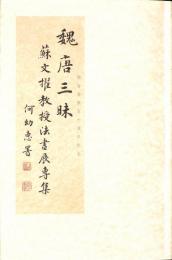 魏唐三昧
蘇文擢教授法書展專集
何幼惠署